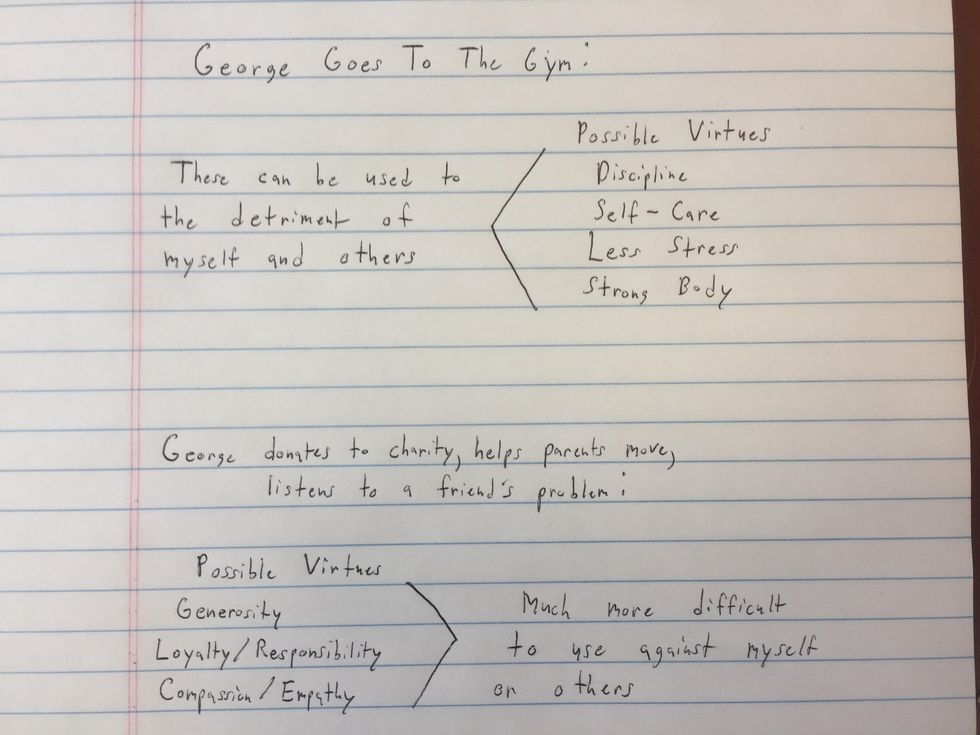 George Goes To The Gym:
Possible Virtues
These can be used to
the detriment of
myself and others
Discipline
Self-Care
Less Stress
Strong Body
George donates to charity, helps parents move,
listens to a friend's problem:
Possible Virtues
Generosity
Loyalty/Responsibility
Compassion/Empathy
Much more difficult
to use against myself
or others